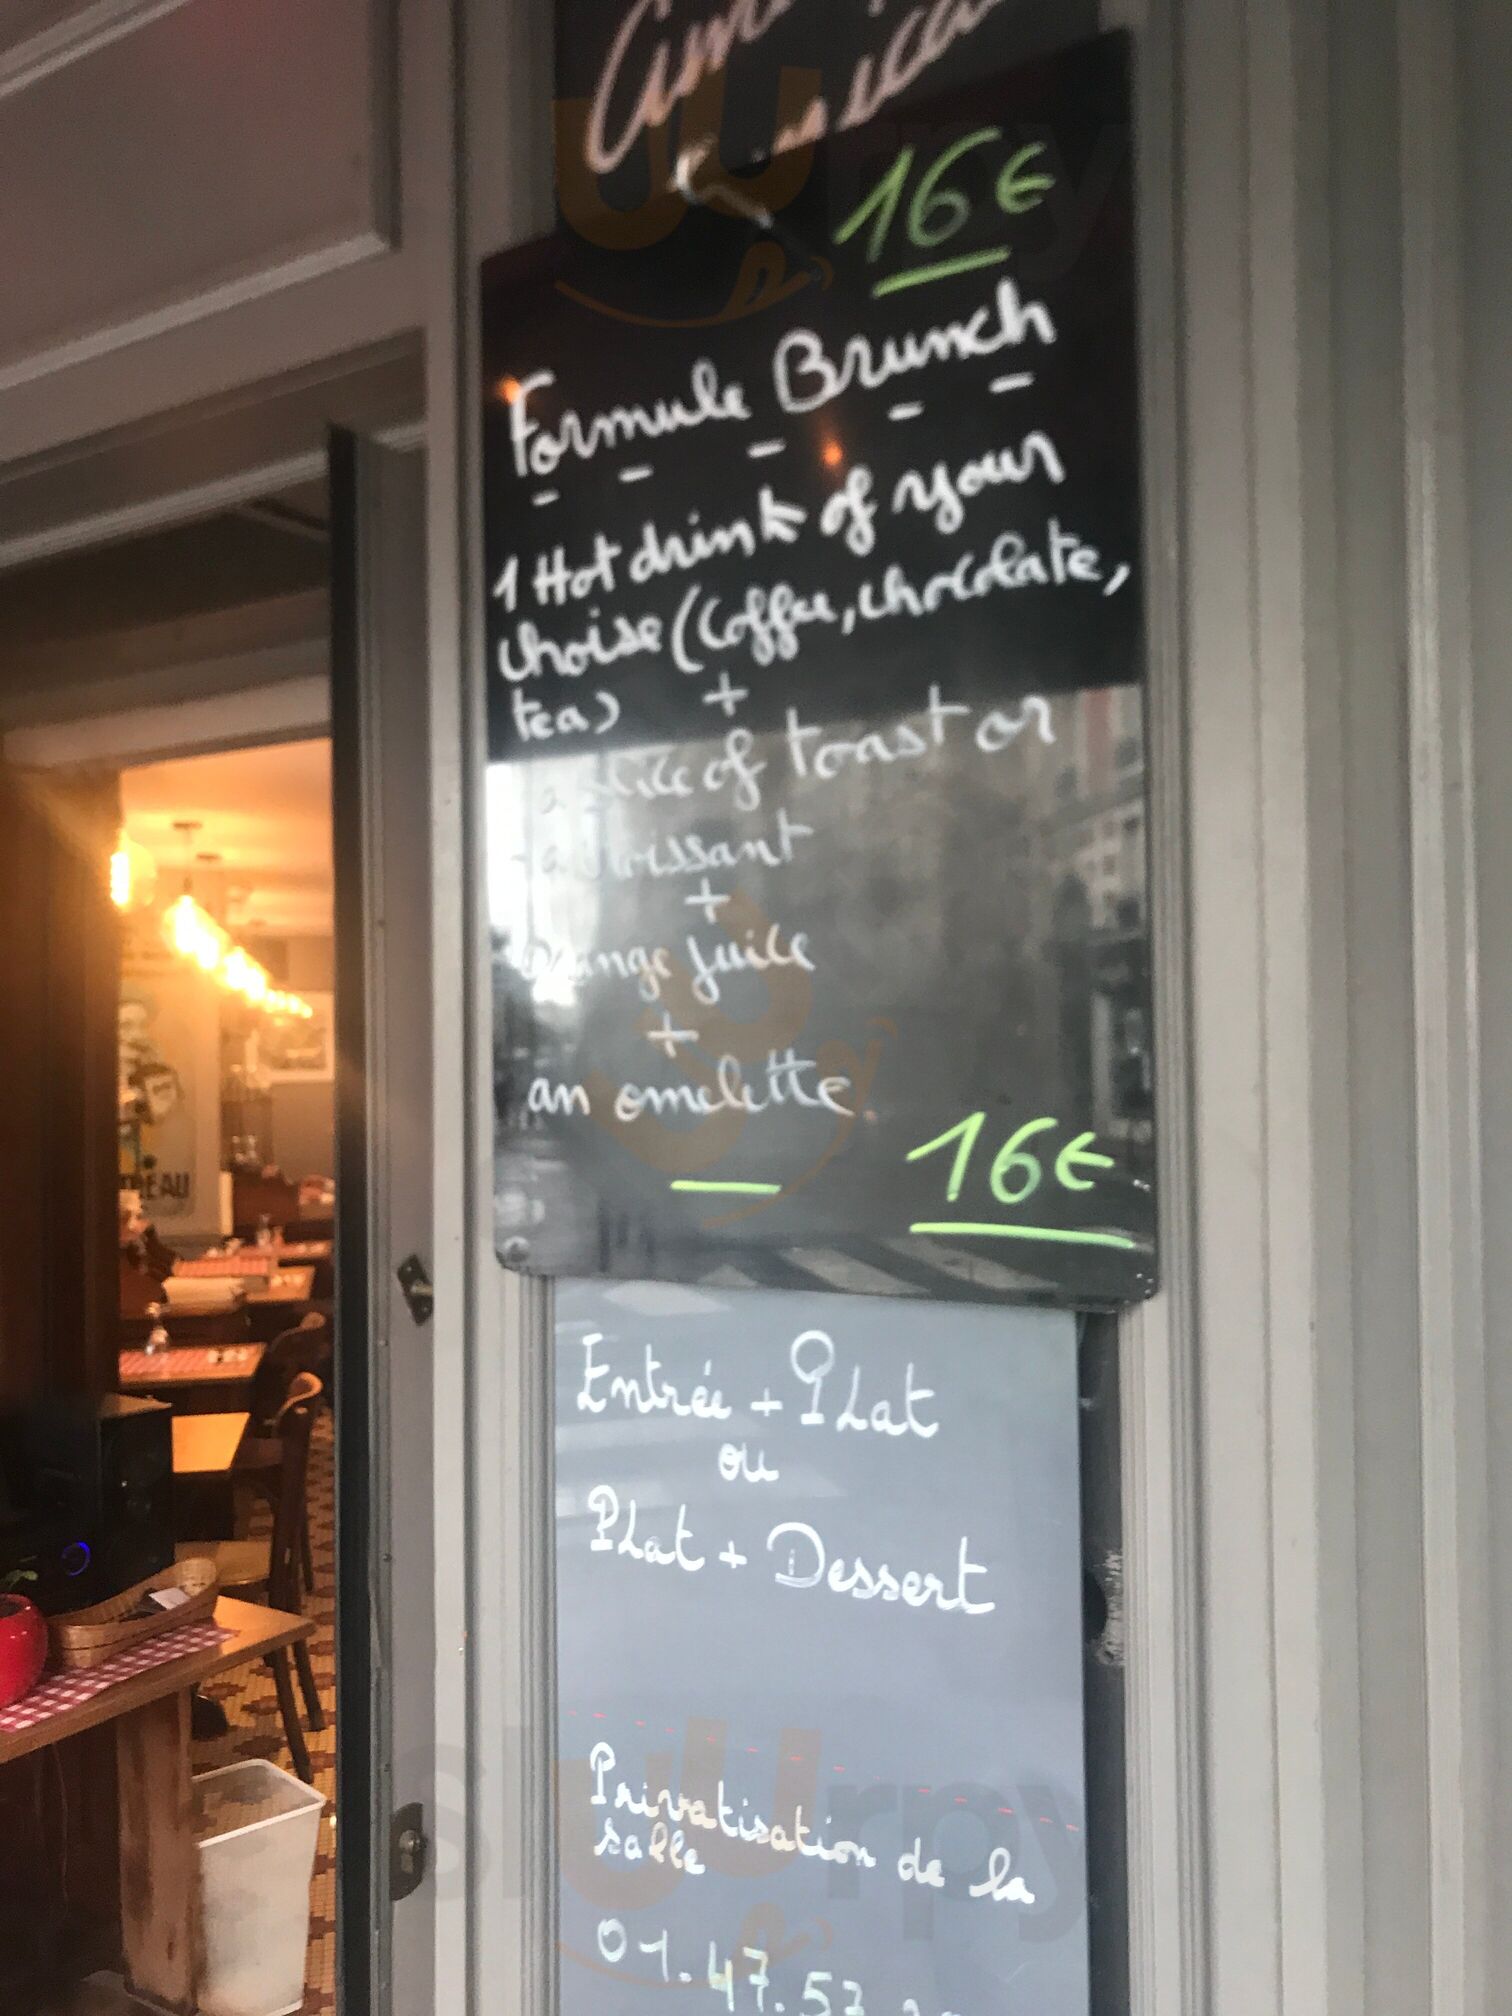 16€
Formule Brunch
1 Hot drink of your
choise (Coffee, chocolate,
tea) +
a slice of toast or
a croissant
+
Orange juice
+
an omelette
16€
Entrée + Plat
ou
Plat + Dessert
Privatisation de la
salle
01.47.53